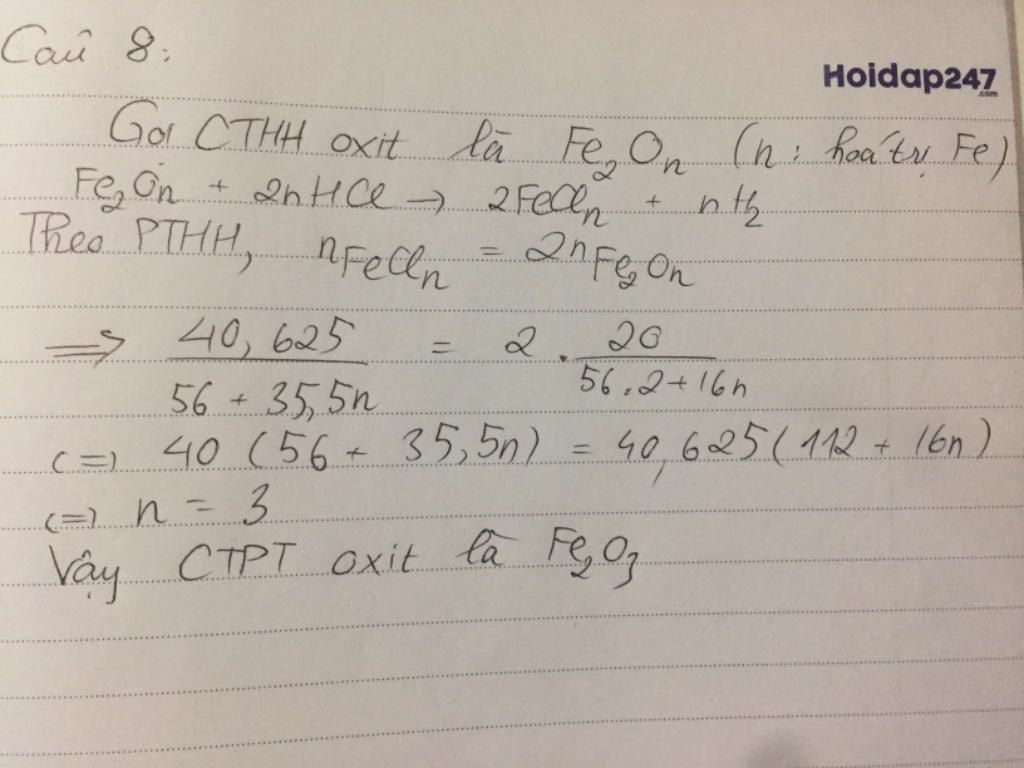 Câu 8:
Hoidap247
.com
Gọi CTHH oxit là Fe₂Oₙ (n: hoá trị Fe)
Fe₂Oₙ + 2nHCl → 2FeClₙ + nH₂
Theo PTHH, nFeClₙ = 2nFe₂Oₙ
⟹ 40,625 / (56 + 35,5n) = 2 . 20 / (56.2+16n)
(=) 40 (56 + 35,5n) = 40,625(112 + 16n)
(=) n = 3
Vậy CTPT oxit là Fe₂O₃